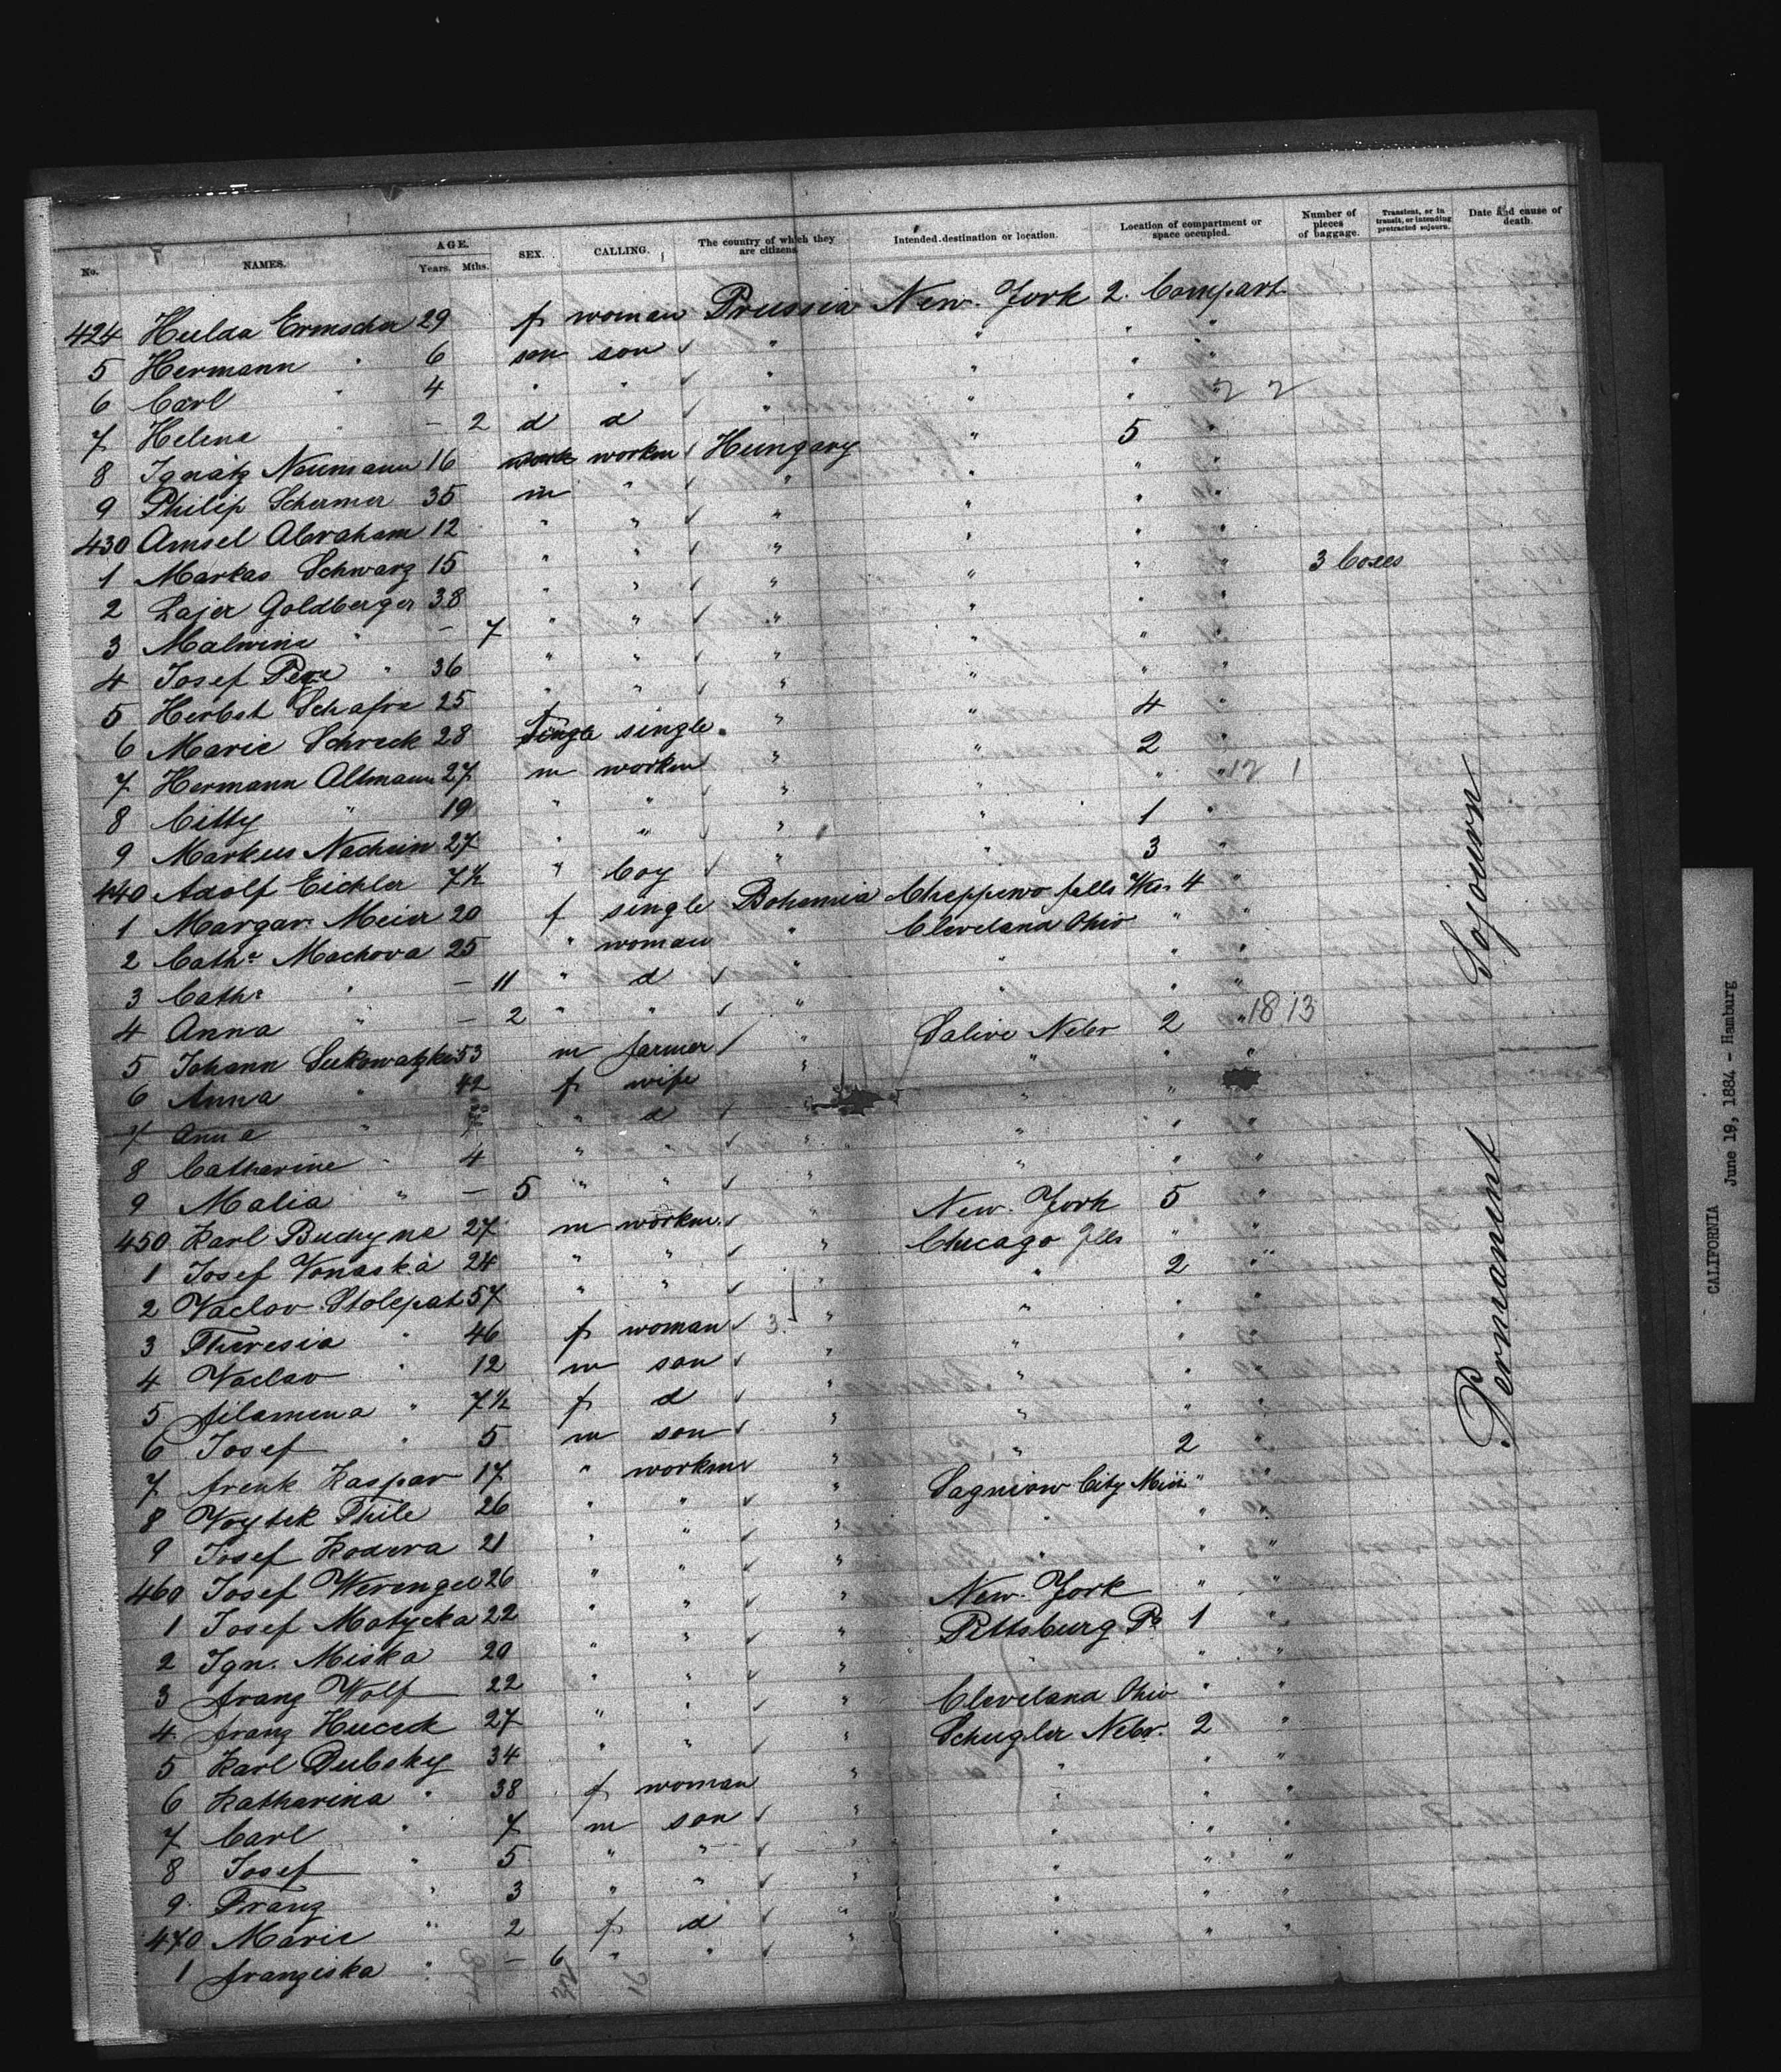 No. NAMES. AGE. Years. Mths. SEX. CALLING. The country of which they are citizens. Intended destination or location. Location of compartment or space occupied. Number of pieces of baggage. Transient, or in transit, or intending protracted sojourn. Date and cause of death.
424 Hulda Ermscher 29 f woman Prussia New. York 2. Compart.
5 Hermann " 6 son son " " " "
6 Carl " 4 " " " " " "
7 Helene " — 2 d d " " " " 2 2
8 Ignatz Naumann 16 workm Hungary " 5 "
9 Philip Schermer 35 m " " " " "
430 Amsel Abraham 12 " " " " " "
1 Markas Schwarz 15 " " " " " "
2 Lajer Goldberger 38 " " " " " " 3 Coxes
3 Malwine " — 7 " " " " " "
4 Josef " 36 " " " " " "
5 Herbst Schafre 25 " " " " " "
6 Marie Schreck 28 f single " " 4 "
7 Hermann Altmann 27 m workm " " 2 "
8 Citty " 19 " " " " " " 12 1
9 Markus Nachein 27 " " " " 1 "
440 Adolf Eichler 7½ " boy " " 3 "
1 Margar. Meier 20 f single Bohemia Cheppewo falls Wis 4 "
2 Cath.a Machova 25 " woman " Cleveland Ohio " "
3 Cath.a " — 11 " d " " " "
4 Anna " — 2 " " " " " " 18 13
5 Johann Sukowatzki 53 m farmer " Salive Nebr 2 "
6 Anna " 42 f wife " " " "
7 Anna " " d " " "
8 Catherine " 4 " " " " " "
9 Malia " — 5 " " " " " "
450 Karl Budyne 27 m workm. " New. York 5 "
1 Josef Vonaska 24 " " " Chicago Ills " "
2 Vaclav Stolepat 57 " " " " 2 "
3 Theresia " 46 f woman 3. " " " "
4 Vaclav " 12 m son " " " "
5 filamena " 7½ f d " " " "
6 Josef " 5 m son " " " "
7 frenk Kaspar 17 " workm " " 2 "
8 Voytek Thile 26 " " " Sagniow City Mich " "
9 Josef Kodera 21 " " " " " "
460 Josef Werengel 26 " " " " " "
1 Josef Motycka 22 " " " New. York " "
2 Ign. Miska 20 " " " Pittsburg Pa 1 "
3 franz Wolf 22 " " " " " "
4. franz Hucek 27 " " " Cleveland Ohio " "
5 Karl Dubsky 34 " " " Schugler Nebr. 2 "
6 Katharina " 38 f woman " " " "
7 Carl " 7 m son " " " "
8 Josef " 5 " " " " " "
9. Franz " 3 " " " " " "
470 Marie " 2 f d " " " "
1 franziska " — 6 " " " " " "
Sojourn
Permanent
CALIFORNIA
June 19, 1884 - Hamburg